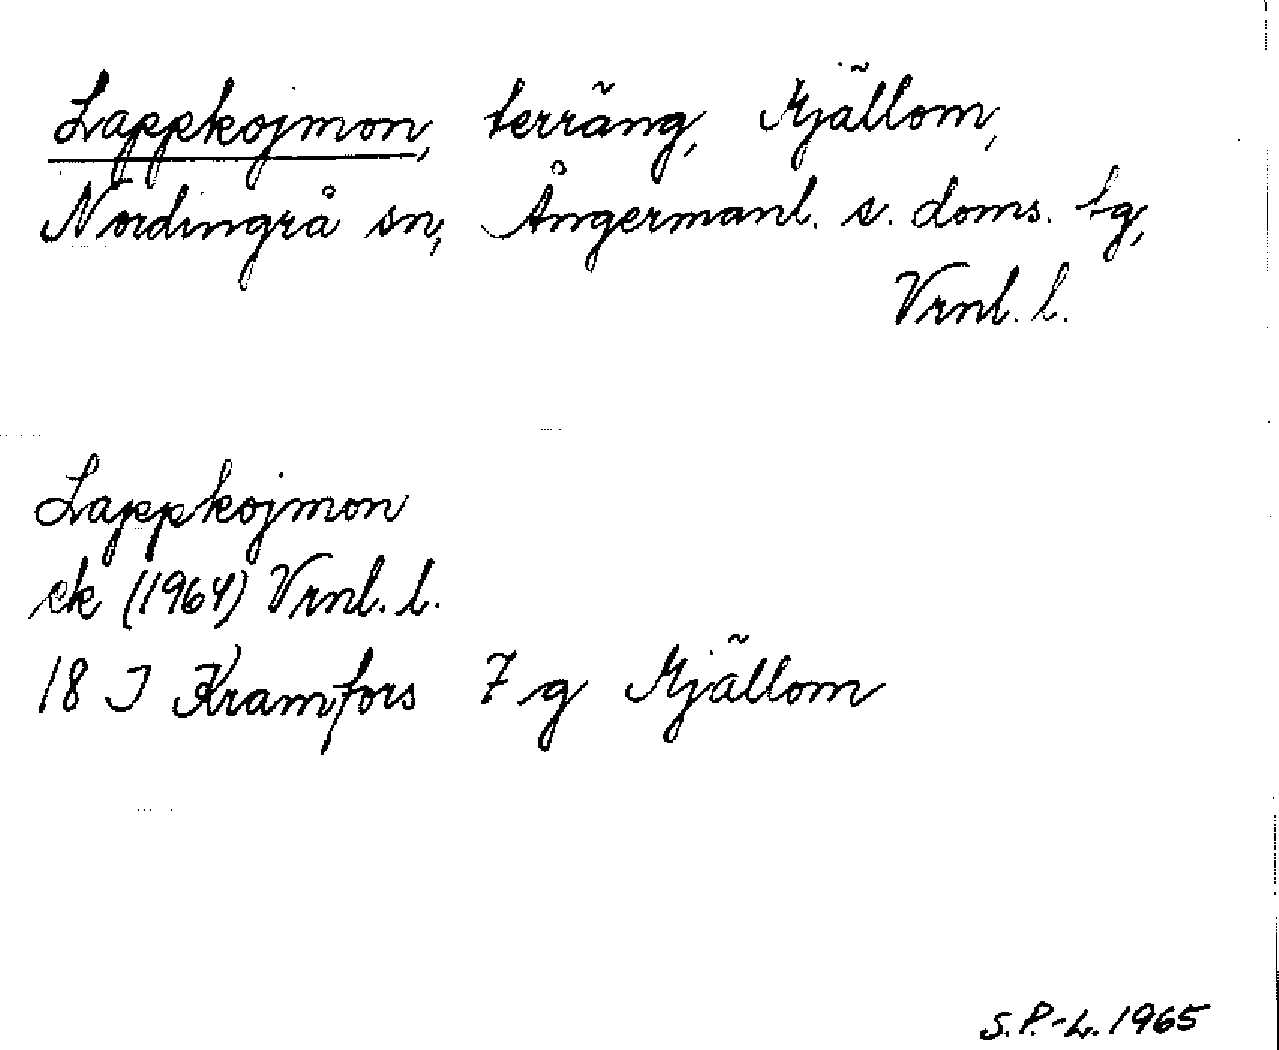 Lappkojmon, terräng, Mjällom,
Nordingrå sn, Ångermanl. s. doms. tg,
Vrnl. l.
Lappkojmon
ek (1964) Vrnl. l.
18 I Kramfors 7 g Mjällom
S.P.-L. 1965